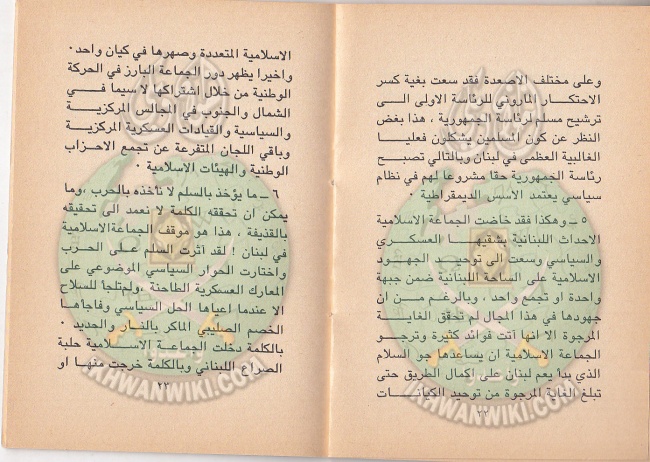 وعلى مختلف الاصعدة فقد سعت بغية كسر
الاحتكار الماروني للرئاسة الاولى الى
ترشيح مسلم لرئاسة الجمهورية ، هذا بغض
النظر عن كون المسلمين يشكلون فعليا
الغالبية العظمى في لبنان وبالتالي تصبح
رئاسة الجمهورية حقا مشروعا لهم في نظام
سياسي يعتمد الاسس الديمقراطية
٥ ـ وهكذا فقد خاضت الجماعة الاسلامية
الاحداث اللبنانية بشقيها العسكري
والسياسي وسعت الى توحيد الجهود
الاسلامية على الساحة اللبنانية ضمن جبهة
واحدة او تجمع واحد ، وبالرغم من ان
جهودها في هذا المجال لم تحقق الغاية
المرجوة الا انها آتت فوائد كثيرة وترجو
الجماعة الاسلامية ان يساعدها جو السلام
الذي بدأ يعم لبنان على إكمال الطريق حتى
تبلغ الغاية المرجوة من توحيد الكيانات
٢٢
الاسلامية المتعددة وصهرها في كيان واحد٠
واخيرا يظهر دور الجماعة البارز في الحركة
الوطنية من خلال اشتراكها لا سيما في
الشمال والجنوب في المجالس المركزية
والسياسية والقيادات العسكرية المركزية
وباقي اللجان المتفرعة عن تجمع الاحزاب
الوطنية والهيئات الاسلامية ٠
٦ ـ ما يؤخذ بالسلم لا نأخذه بالحرب ،وما
يمكن ان تحققه الكلمة لا نعمد الى تحقيقه
بالقذيفة ، هذا هو موقف الجماعة الاسلامية
في لبنان ٠ لقد آثرت السلم على الحرب
واختارت الحوار السياسي الموضوعي على
المعارك العسكرية الطاحنة ،ولم تلجأ للسلاح
الا عندما اعياها الحل السياسي وفاجأها
الخصم الصليبي الماكر بالنار والحديد ٠
بالكلمة دخلت الجماعة الاسلامية حلبة
الصراع اللبناني وبالكلمة خرجت منها او
٢٣
IKHWANWIKI.COM
IKHWANWIKI.COM